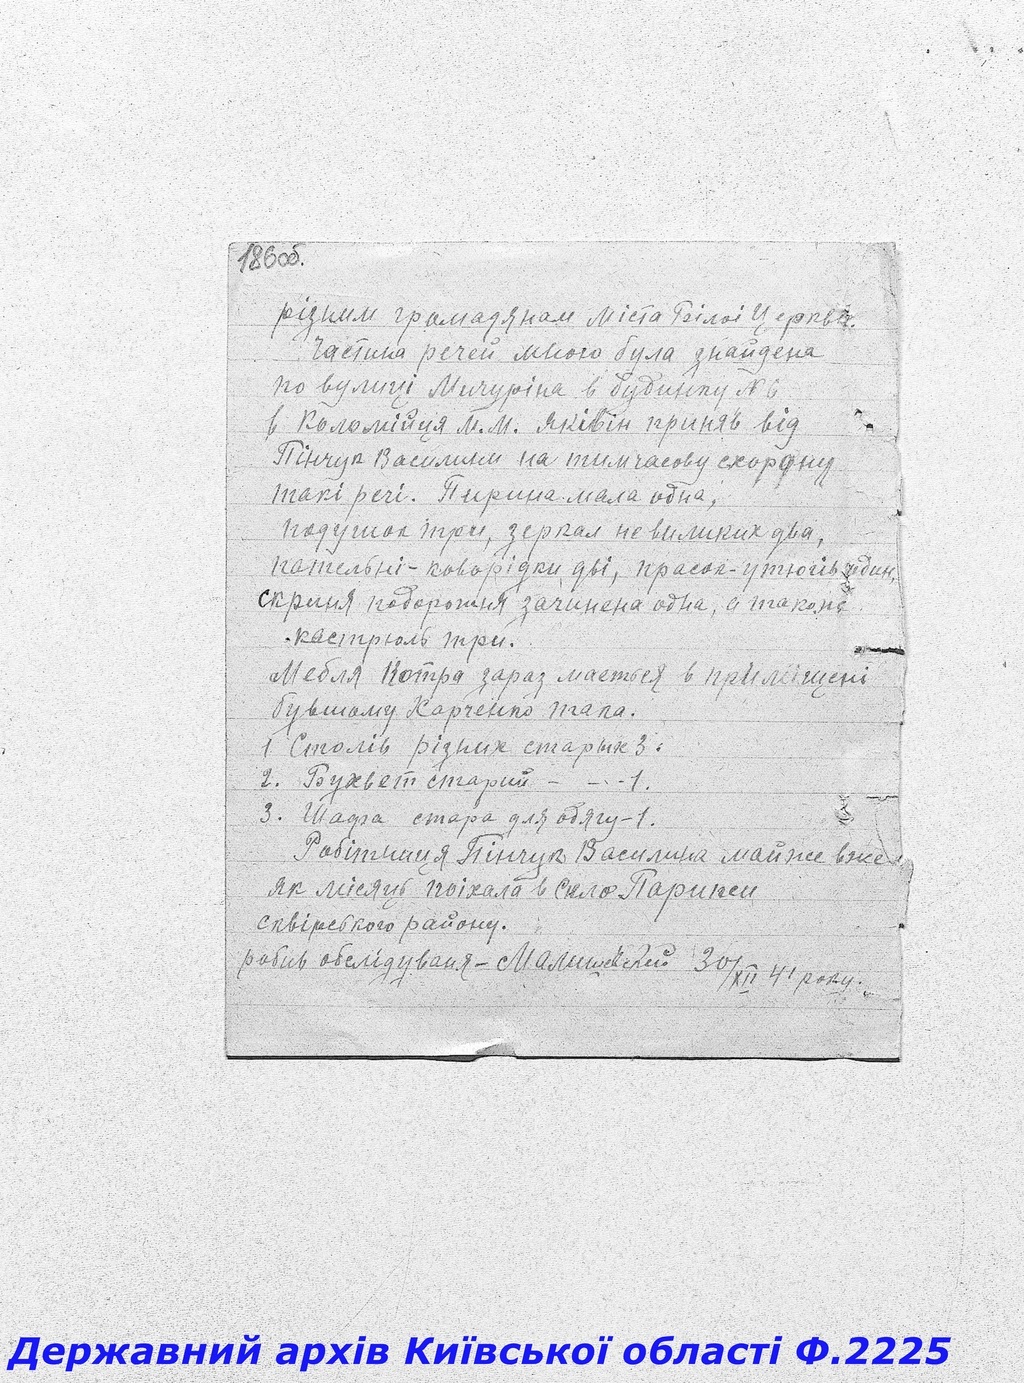 186об.
різним громадянам міста Білоі Церкви.
Частина речей мною була знайдена
по вулиці Мичуріна в будинку № 6
в Коломійця М.М. які він приняв від
Пінчук Василини на тимчасову схорону
такі речі. Пирина мала одна,
подушок три, зеркал не великих два,
пательні-коворідки дві, прасок-утюгів один,
скриня подорожня зачинена одна, а також
кастрюль три.
Мебля Котра зараз мається в приміщені
бувшому Харченко така.
1 Столів різних старых 3.
2. Бухвет старий - - - 1.
3. Шафа стара для одягу-1.
Робітниця Пінчук Василина майже вже
як місяць поіхала в село Парипси
сквірського району.
робив обслідуваня - 30/XII 41 року.
Державний архів Київської області Ф.2225